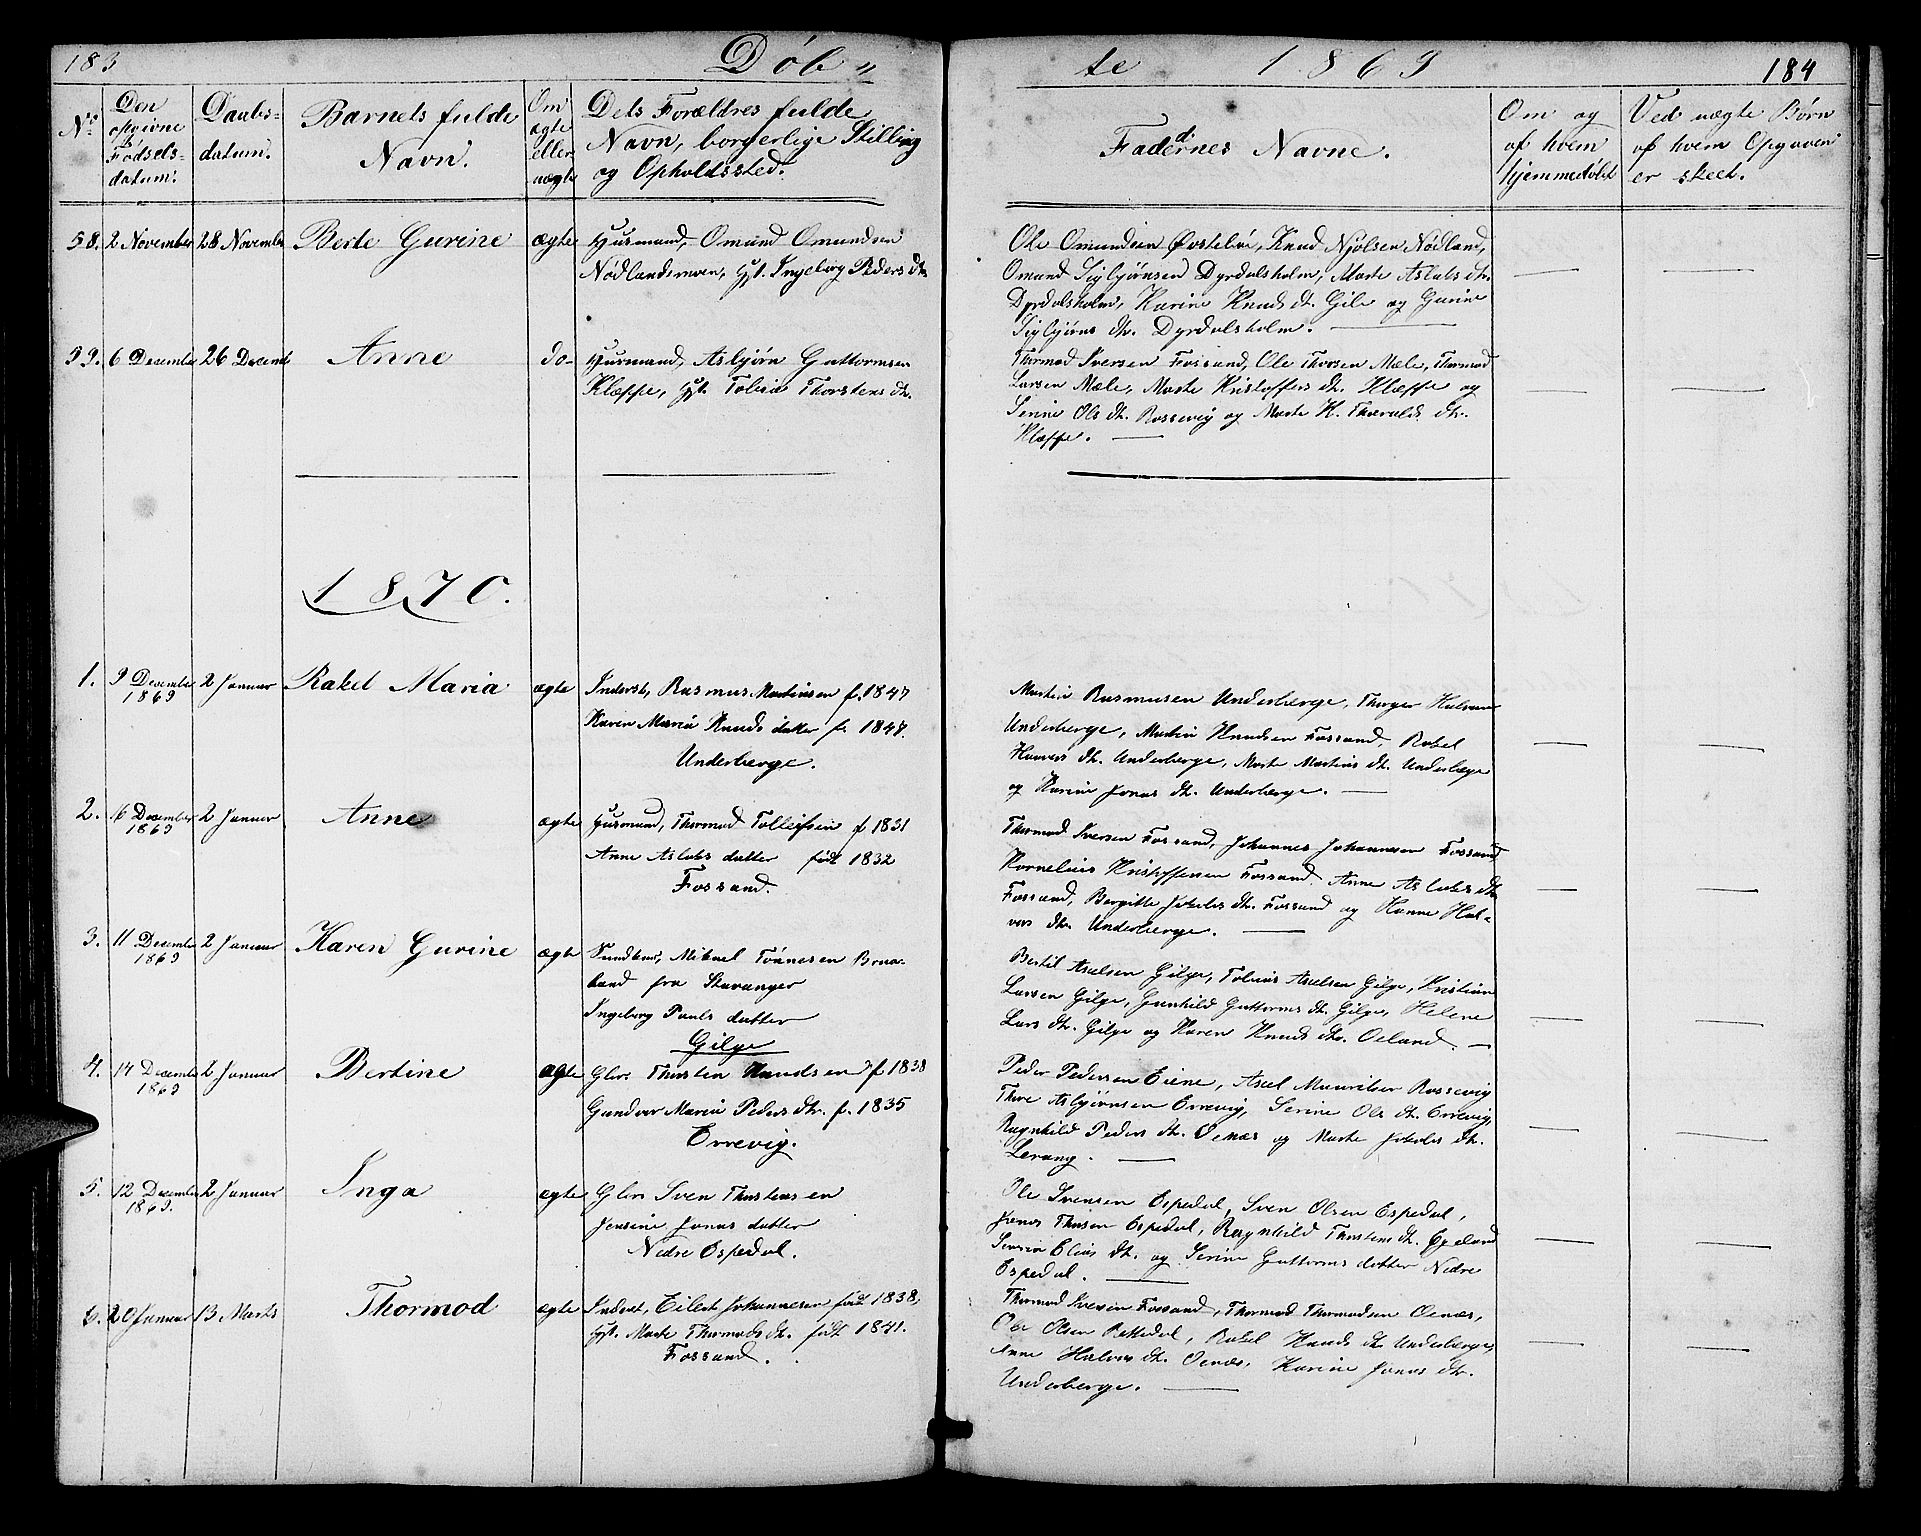 183
Döb „
te 1869
184
No
Den opgivne Födselsdatum.
Daabsdatum.
Barnets fulde Navn.
Om ægte eller uægte
Dets Forældres fulde Navn, borgerlige Stilling og Opholdssted.
Faddernes Navne.
Om og af hvem hjemmedöbt
Ved uægte Börn af hvem Opgaven er skeet.
58. 2 November 28 November Berte Gurine ægte Husmand, Omund Omundsen
Nödlandsmoen, Hst. Ingeborg Peders dtr.
Ole Omundsen Östebö, Knud Njølsen Nödland,
Omund Sigbjörnsen Dyrdalsholm, Marte Aslaks dtr.
Dyrdalsholm, Karine Knuds dt. Gilje og Gurine
Sigbjörns dtr. Dyrdalsholm.
59. 6 December 26 Decemb Anne do- Husmand, Asbjörn Guttormsen
Klæppe, Hst. Tobia Thorstens dt.
Thormod Iversen Fossand, Ole Thorsen Mæle, Thormod
Larsen Mæle, Marte Kristoffers dt. Klæppe og
Serine Ols dt. Rossevig og Marte K. Thoralds dtr.
Klæppe.
1870.
1. 9 December 1869 2 Januar Rakel Maria ægte Inderst, Rasmus Martinsen f. 1847
Karen Maria Knuds datter f. 1847.
Underberge.
Martin Rasmusen Underberge, Thorger Halvors
Underberge, Martin Knudsen Fossand, Rakel
Haavors dt. Underberge, Marte Martins dt. Underberge
og Karine Jonas dt. Underberge.
2. 16 December 1869 2 Januar Anne ægte Husmand, Thormod Tolleifsen f 1831
Anne Aslaks datter født 1832
Fossand.
Thormod Iversen Fossand, Johannes Johannesen Fossand
Kornelius Kristoffersen Fossand, Anne Aslaks dt
Fossand, Bergitte Jakobs dt. Fossand og Hanne Hal-
vors dtr. Underberge.
3. 11 December 1869 2 Januar Karen Gurine ægte Mikael Tönnesen Brua-
land fra Stavanger
Ingeborg Pauls datter
Gilje
Bertil Axelsen Gilje, Tobias Axelsen Gilje, Kristian
Larsen Gilje, Gunhild Guttorms dt. Gilje, Helene
Lars dt. Gilje og Karen Knuds dtr. Oeland.
4. 14 December 1869 2 Januar Bertine ægte Gbr. Thorsten Knudsen f 1838
Gundvor Maria Peders dtr. f. 1835
Errevig.
Peder Pedersen Eiene, Axel Mauritser Rossevig
Thore Asbjörnsen Errevig, Serine Ols dt. Errevig,
Ragnhild Peders dt. Oenæs og Marte Jakobs dt.
Lerang.
5. 12 December 1869. 2 Januar Inga ægte Gbr. Sven Thorstensen
Jensine Jonas datter
Nedre Espedal.
Ole Svensen Espedal, Sven Olsen Espedal,
Jonas Thorsen Espedal, Ragnhild Thorstens dt. Eyeland
Elias dt. og Serine Guttorms datter Nedre
Espedal.
6. 20 Januar 13 Marts Thormod ægte Inderst, Eilert Johannesen födt 1838,
Hst. Marte Thormods dt. födt 1841.
Fossand.
Thormod Iversen Fossand, Thormod Thormodsen Oenæs,
Ole Olsen Rettedal, Rakel Knuds dt. Underberge,
Anne Halvors dt. Oenæs, Karine Jonas dt.
Underberge.